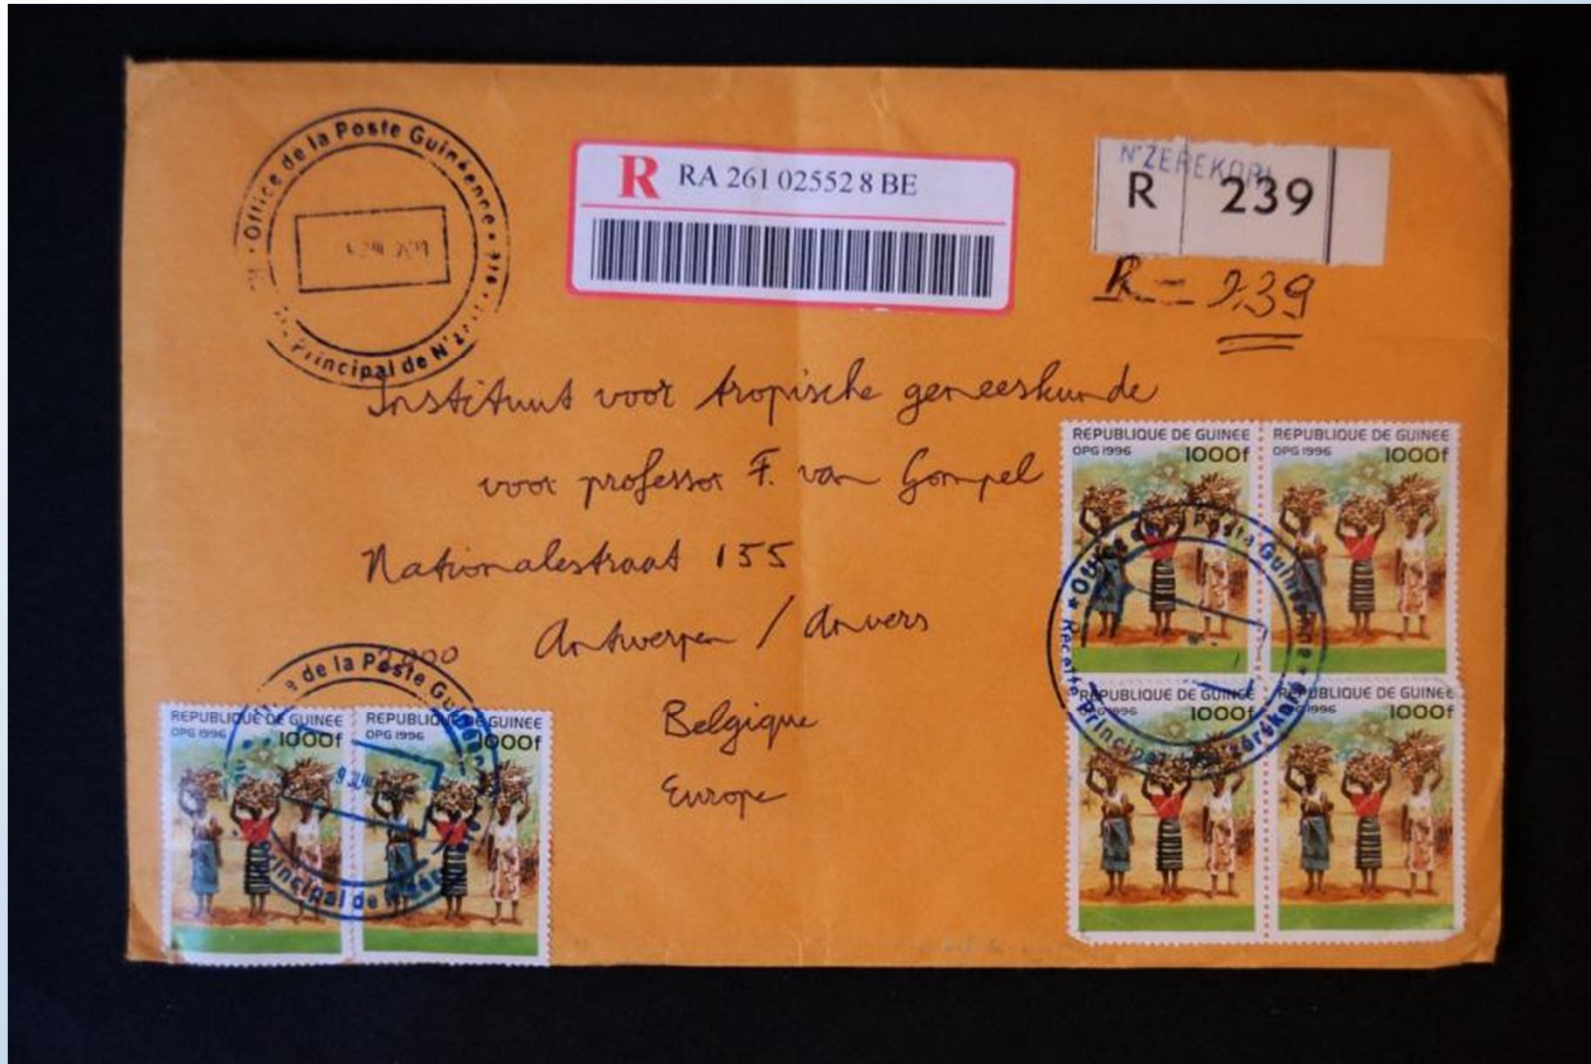 Office de la Poste Guinéenne
Principal de
R RA 261 02552 8 BE
N'ZEREKORE
R 239
R = 239
Instituut voor tropische geneeskunde
voor professor F. van Gompel
Nationalestraat 155
2000 Antwerpen / Anvers
Belgique
Europe
REPUBLIQUE DE GUINEE
OPG 1996 1000f
REPUBLIQUE DE GUINEE
OPG 1996 1000f
REPUBLIQUE DE GUINEE
OPG 1996 1000f
REPUBLIQUE DE GUINEE
OPG 1996 1000f
Poste Guinéenne
Recette Principale
REPUBLIQUE DE GUINEE
OPG 1996 1000f
REPUBLIQUE DE GUINEE
OPG 1996 1000f
de la Poste
Principal de